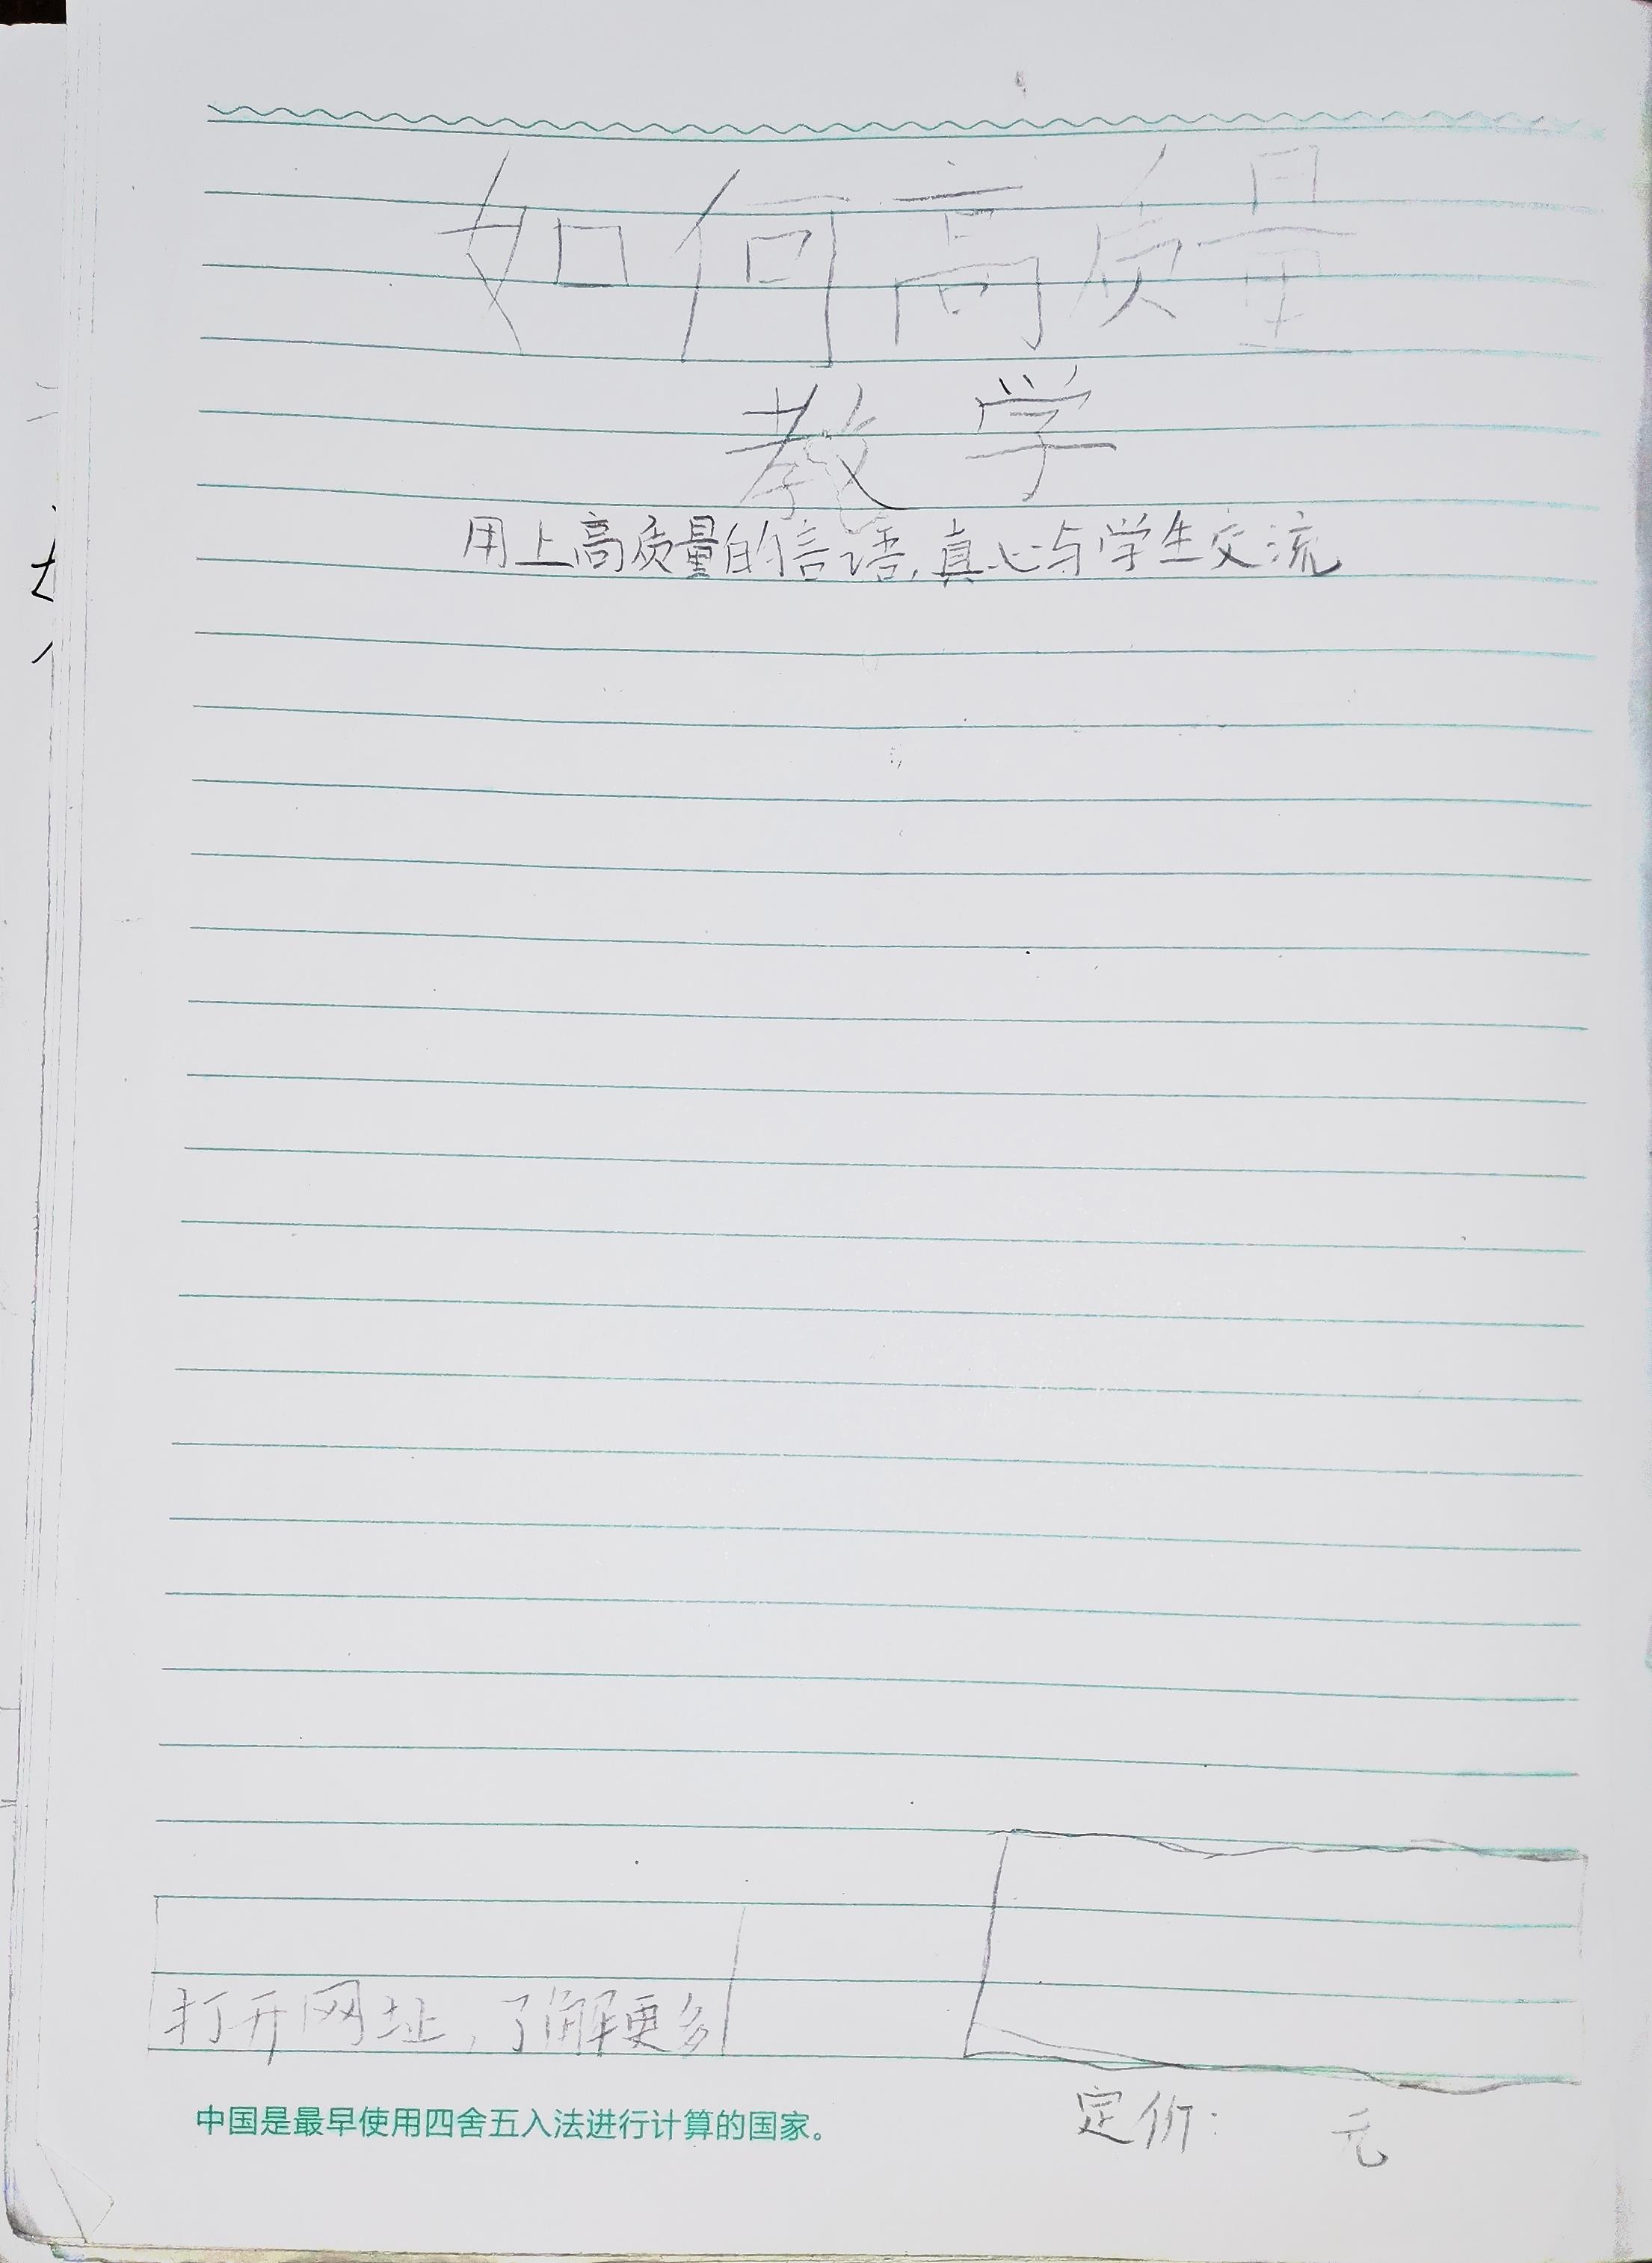 如何高质量
教学
用上高质量的信语,真心与学生交流
打开网址,了解更多
中国是最早使用四舍五入法进行计算的国家。
定价: 元